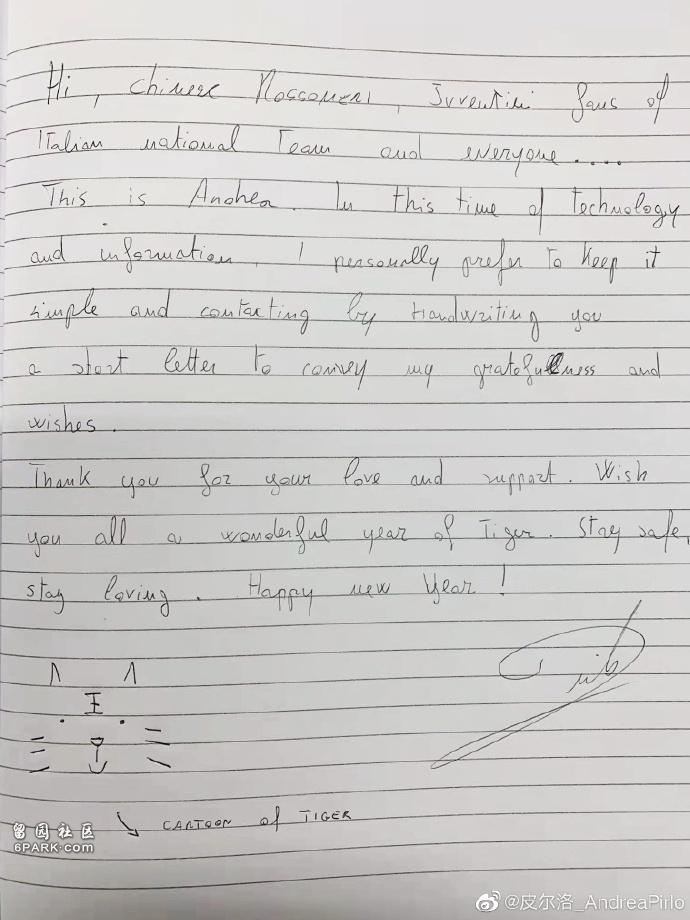 Hi, Chinese Rossoneri, Juventini fans of
Italian national Team and everyone....
This is Andrea. In this time of Technology
and information, I personally prefer to keep it
simple and contacting by Handwriting you
a short letter to convey my gratefullness and
wishes.
Thank you for your love and support. Wish
you all a wonderful year of Tiger. Stay safe,
stay loving. Happy new Year!
王
CARTOON of TIGER
留园社区
6PARK.COM
@皮尔洛_AndreaPirlo